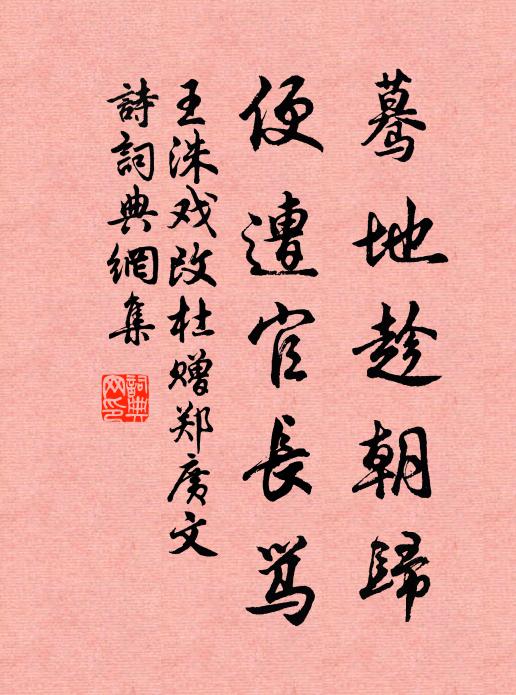 驀地趁朝歸
便遭官長骂
王洙戏改杜赠郑廣文
詩詞典網集
詞典网印